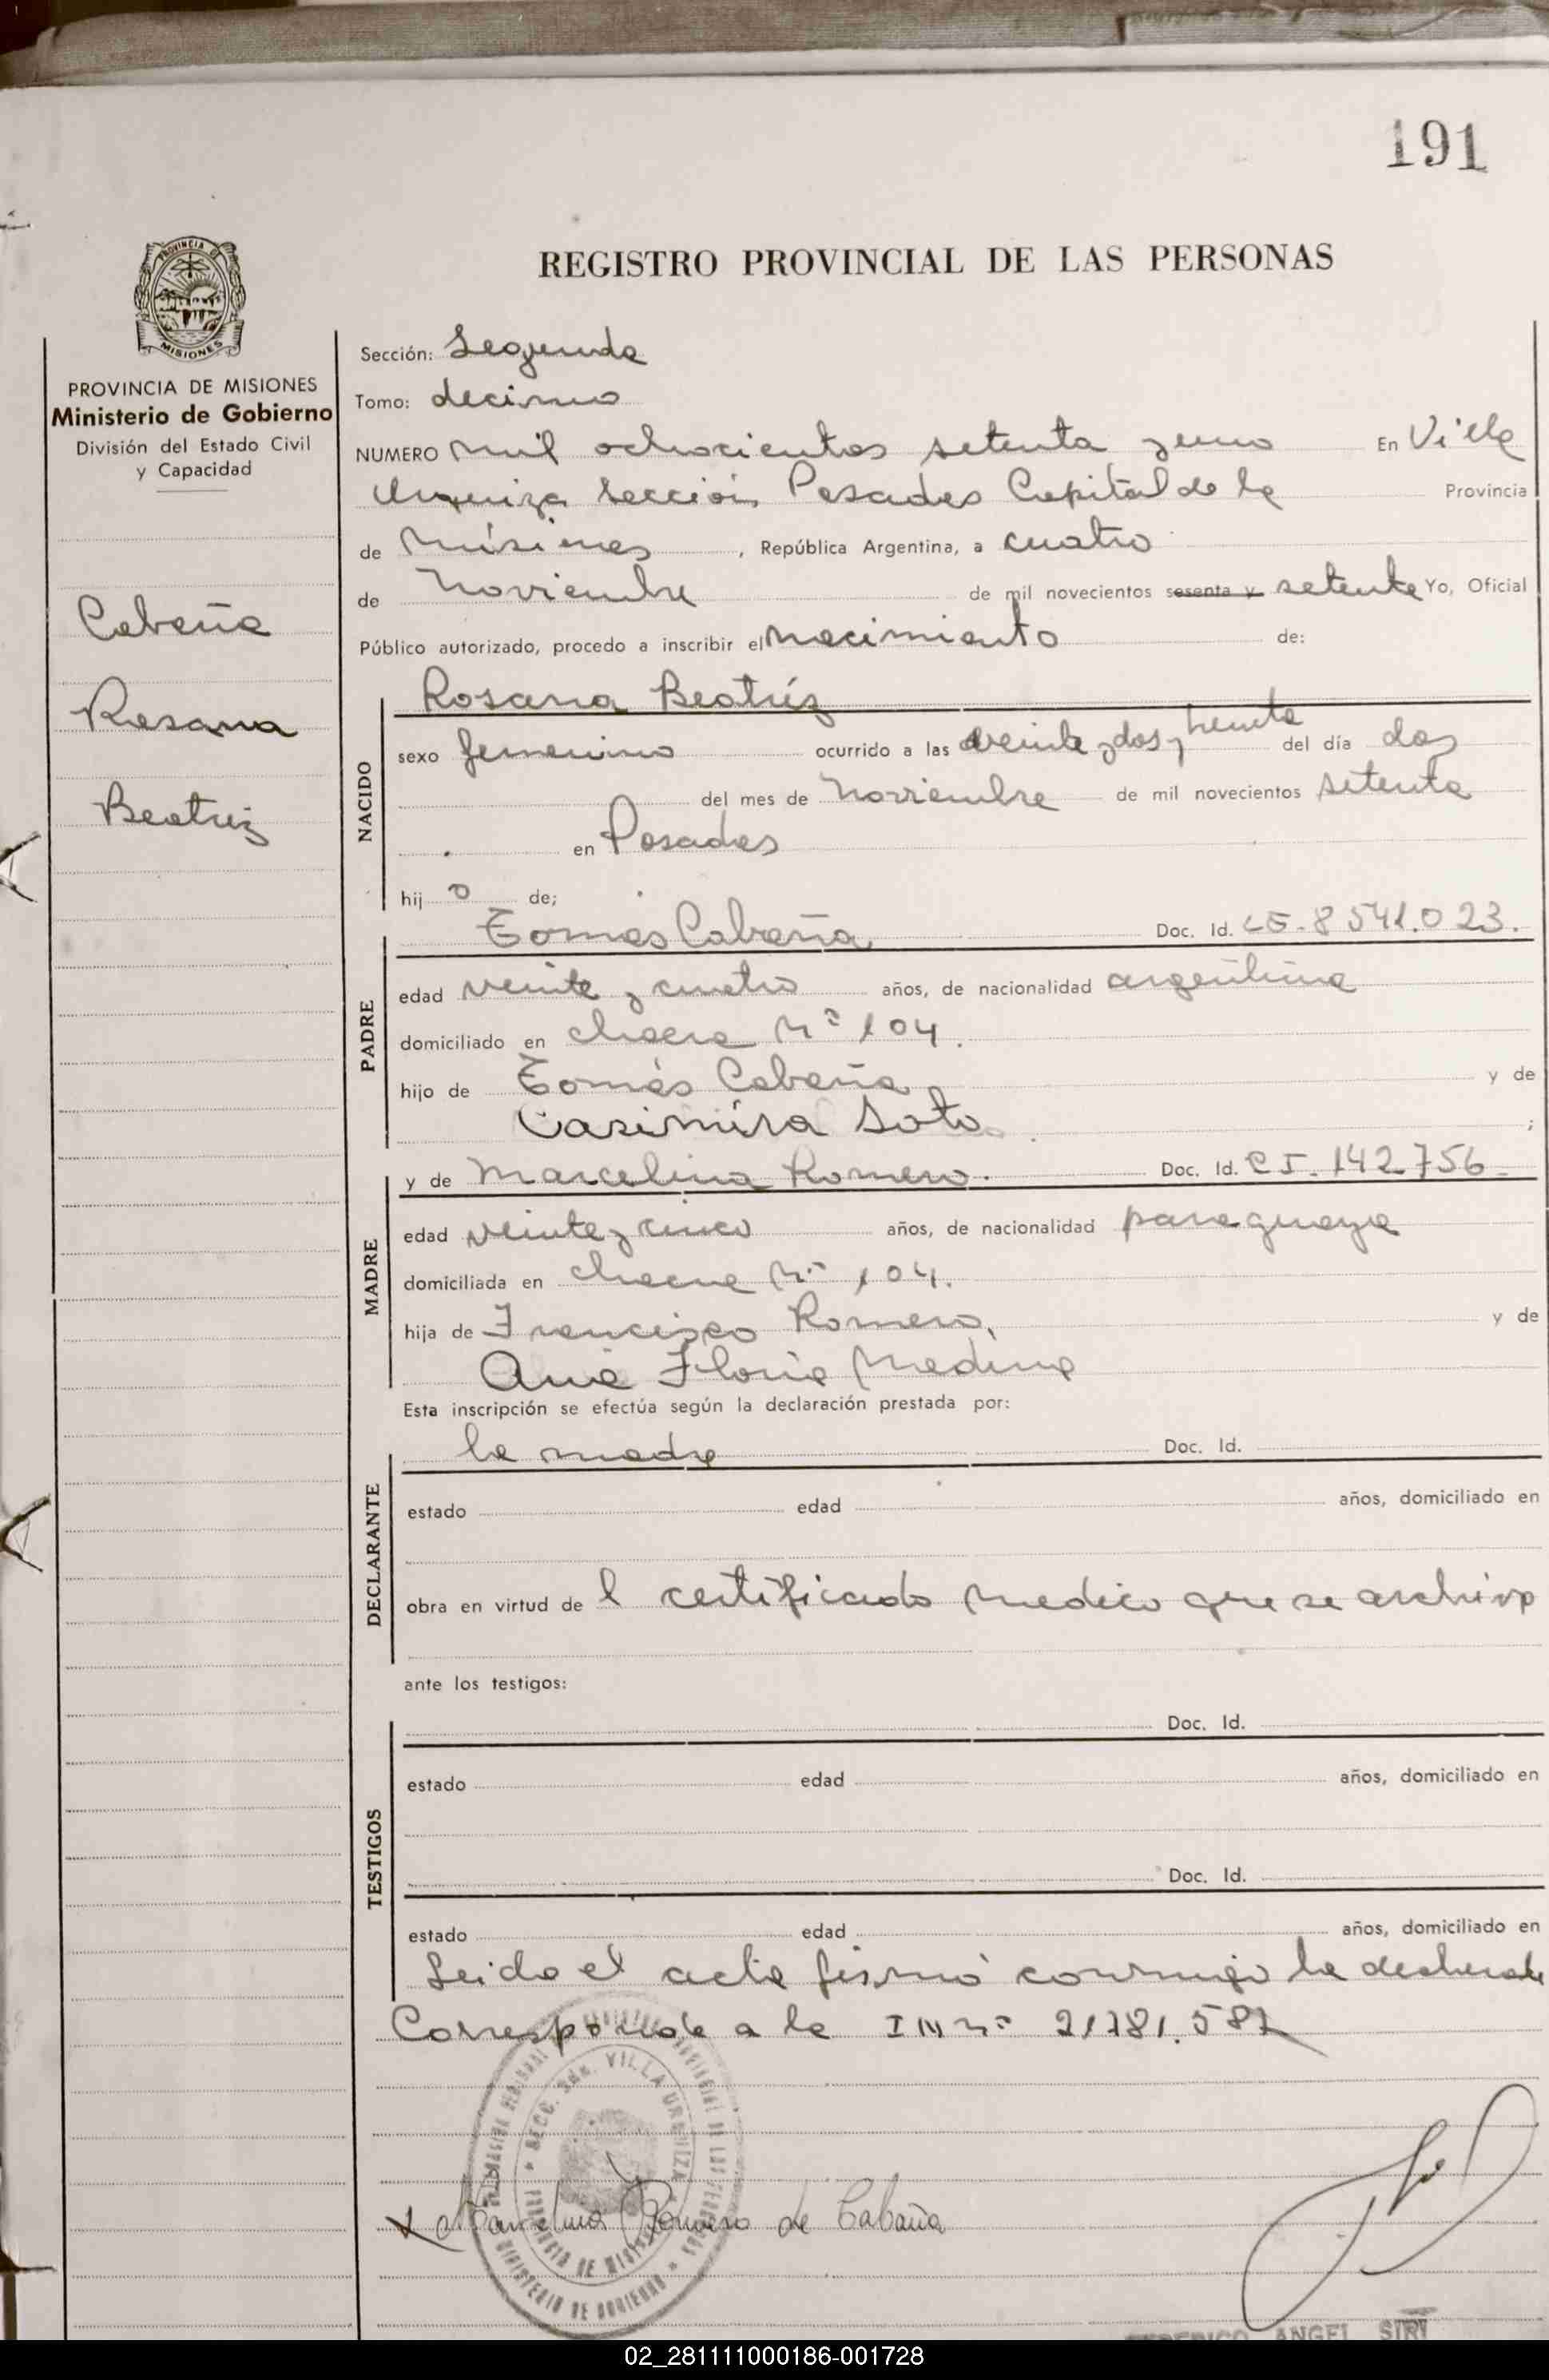 191
REGISTRO PROVINCIAL DE LAS PERSONAS
PROVINCIA DE MISIONES
PROVINCIA DE MISIONES
Ministerio de Gobierno
División del Estado Civil
y Capacidad
Cabaña
Rosana
Beatriz
Sección: Segunda
Tomo: decimo
NUMERO mil ochocientos setenta y uno En Villa
Urquiza Sección Posadas Capital de la Provincia
de Misiones, República Argentina, a cuatro
de Noviembre de mil novecientos sesenta y setenta Yo, Oficial
Público autorizado, procedo a inscribir el nacimiento de:
NACIDO
Rosana Beatríz
sexo femenino ocurrido a las veinte y dos y treinta del día dos
del mes de Noviembre de mil novecientos setenta
en Posadas
hij a de;
PADRE
Tomás Cabaña Doc. Id. LE. 8 541.023.
edad veinte y cuatro años, de nacionalidad argentina
domiciliado en chacra Nº 104.
hijo de Tomás Cabaña y de
Casimira Soto ;
MADRE
y de Marcelina Romero. Doc. Id. CI. 142756
edad veinte y cinco años, de nacionalidad paraguaya
domiciliada en chacra Nº 104.
hija de Francisco Romero, y de
Ana Medina
Esta inscripción se efectúa según la declaración prestada por:
DECLARANTE
la madre Doc. Id.
estado edad años, domiciliado en
obra en virtud de l certificado medico que se archiva
ante los testigos:
TESTIGOS
Doc. Id.
estado edad años, domiciliado en
Doc. Id.
estado edad años, domiciliado en
Leida el acta firmó conmigo la declarante
Corresponde a la IM nº 21781.587
SECC. 2da. VILLA URQUIZA
PROVINCIA DE MISIONES
MINISTERIO DE GOBIERNO
Marcelina Romero de Cabaña
FEDERICO ANGEL SIRI
02_281111000186-001728